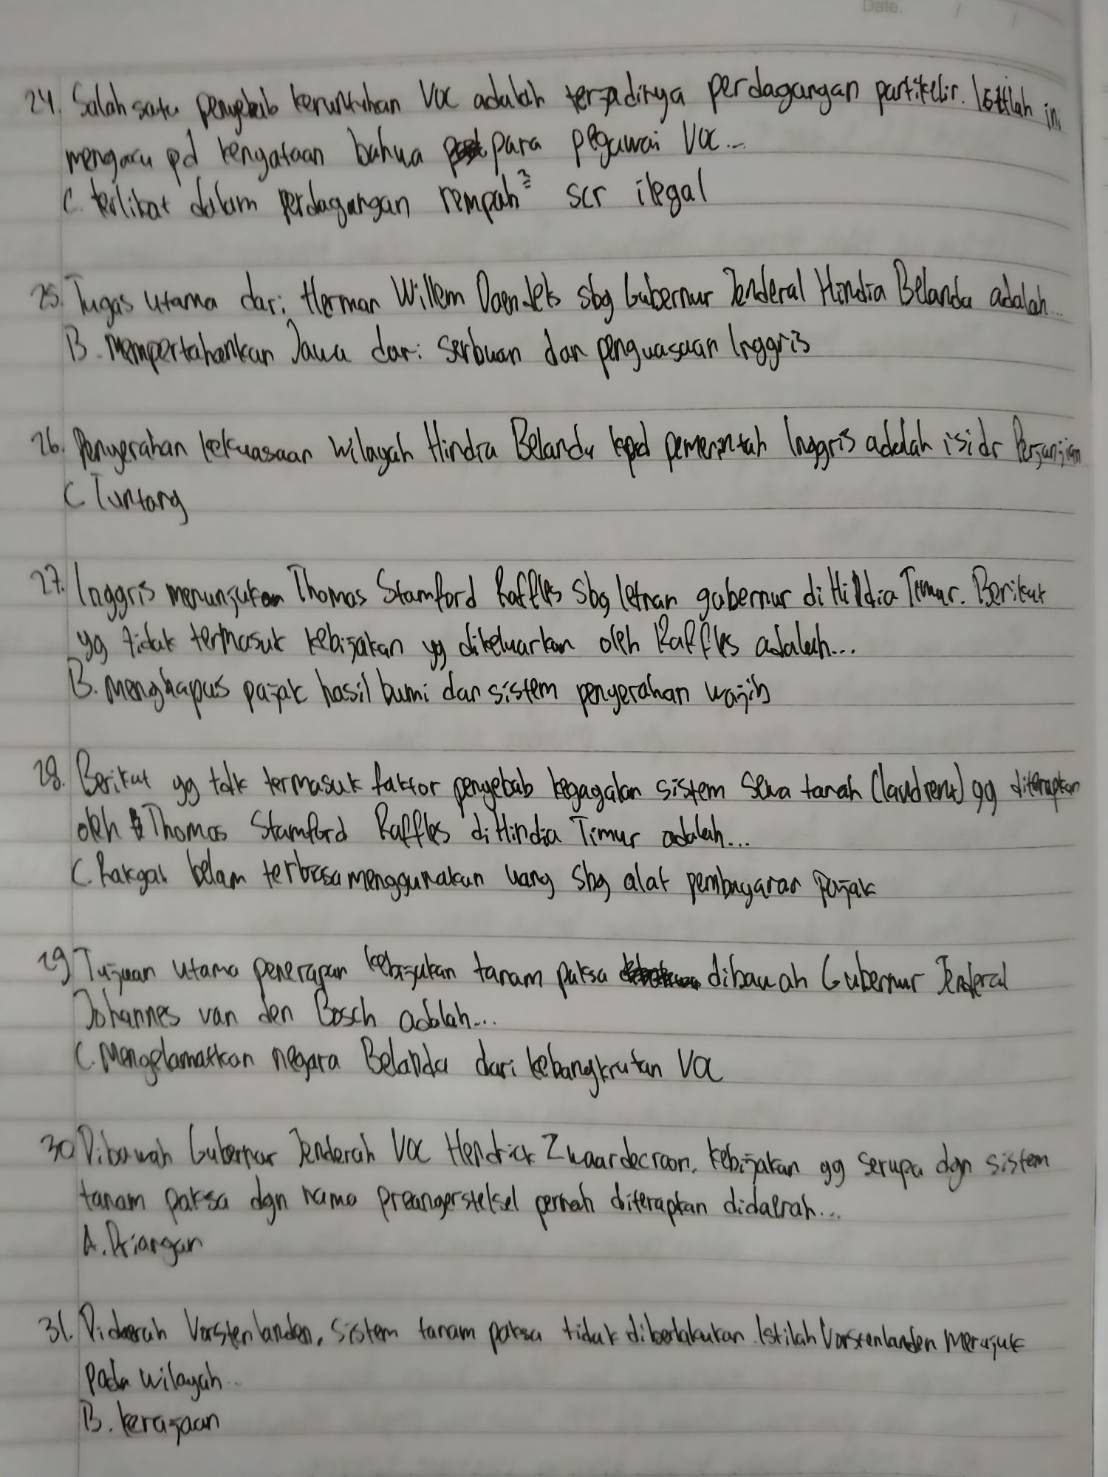 Date. / /
24. Salah satu penyebab keruntuhan VOC adalah terjadinya perdagangan partikelir. Istilah in
mengacu pd kenyataan bahwa para pegawai VOC...
C. terlibat dalam perdagangan rempah² scr ilegal
25. Tugas utama dari Herman Willem Daendels sbg Gubernur Jenderal Hindia Belanda adalah...
B. Mempertahankan Jawa dari serbuan dan penguasaan Inggris
26. Penyerahan kekuasaan wilayah Hindia Belanda kpd pemerintah Inggris adalah isi dr Perjanjian
C Tuntang
27. Inggris menunjukan Thomas Stamford Raffles sbg letnan gubernur di Hildia Timur. Berikut
yg tidak termasuk kebijakan yg dikeluarkan oleh Raffles adalah...
B. Menghapus pajak hasil bumi dan sistem penyerahan wajib
28. Berikut yg tdk termasuk faktor penyebab kegagalan sistem sewa tanah (landrent) yg diterapkan
oleh Thomas Stamford Raffles di Hindia Timur adalah...
C. Rakyat belam terbiasa menggunakan uang sbg alat pembayaran pajak
29 Tujuan utama penerapan kebijakan tanam paksa dibawah Gubernur Jenderal
Johannes van den Bosch adalah...
C. Menyelamatkan negara Belanda dari kebangkrutan VOC
30 Dibawah Gubernur Jenderah VOC Hendrick Zwaardecroon, kebijakan yg serupa dgn sistem
tanam paksa dgn nama preangerstelsel pernah diterapkan didaerah...
A. Priangan
31. Didaerah Vorstenlanden, sistem tanam paksa tidak diberlakukan. Istilah Vorstenlanden merujuk
pada wilayah..
B. kerajaan